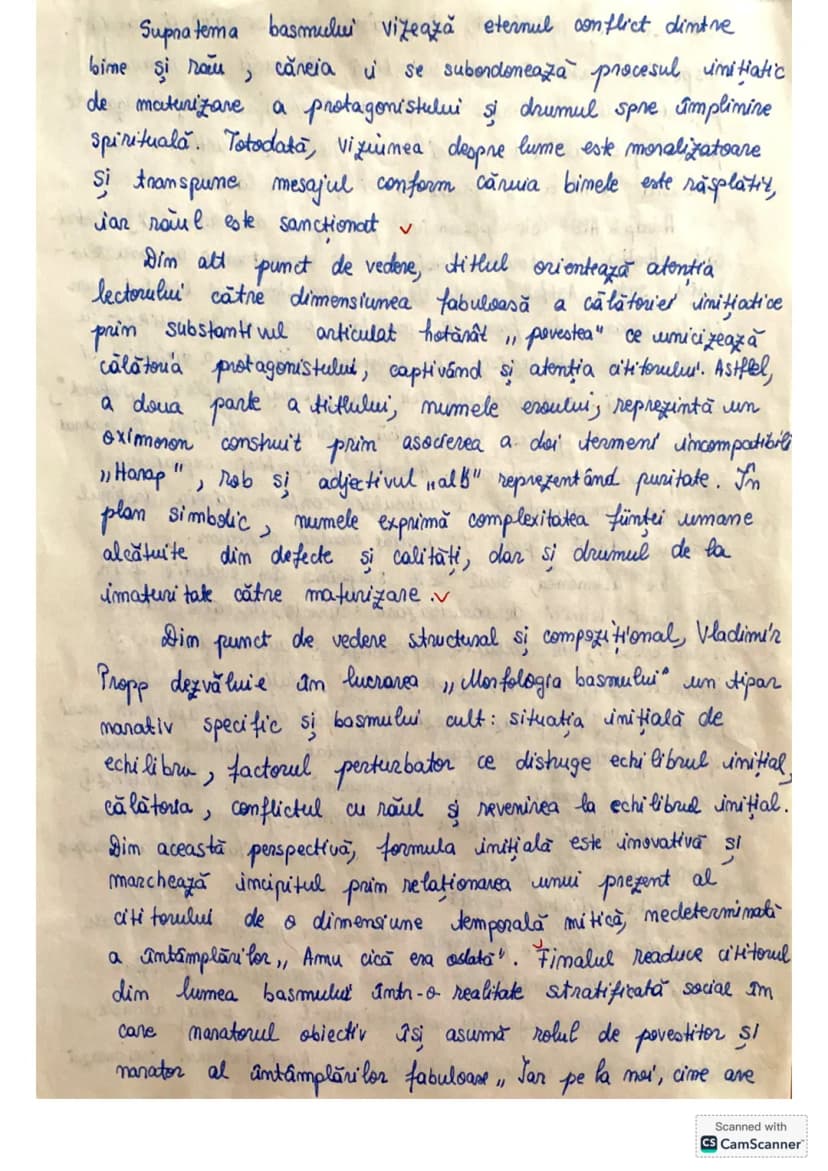 Supratema basmului vizează eternul conflict dintre
bine și rău, căreia îi se subordonează procesul inițiatic
de maturizare a protagonistului și drumul spre împlinire
spirituală. Totodată, viziunea despre lume este moralizatoare
și transpune mesajul conform căruia binele este răsplătit,
iar răul este sancționat
Din alt punct de vedere, titlul orientează atenția
lectorului către dimensiunea fabuloasă a călătoriei inițiatice
prin substantivul articulat hotărât „povestea" ce unicizează
călătoria protagonistului, captivând și atenția cititorului. Astfel,
a doua parte a titlului, numele eroului, reprezintă un
oximoron construit prin asocierea a doi termeni incompatibili
„Harap", rob și adjectivul „alb" reprezentând puritate. În
plan simbolic, numele exprimă complexitatea ființei umane
alcătuite din defecte și calități, dar și drumul de la
imaturitate către maturizare.
Din punct de vedere structural și compozițional, Vladimir
Propp dezvăluie în lucrarea „Morfologia basmului" un tipar
narativ specific și basmului cult: situația inițială de
echilibru, factorul perturbator ce distruge echilibrul inițial,
călătoria, conflictul cu răul și revenirea la echilibrul inițial.
Din această perspectivă, formula inițială este inovativă și
marchează incipitul prin relaționarea unui prezent al
cititorului de o dimensiune temporală mitică, nedeterminată
a întâmplărilor „Amu cică era odată". Finalul readuce cititorul
din lumea basmului într-o realitate stratificată social în
care naratorul obiectiv își asumă rolul de povestitor și
narator al întâmplărilor fabuloase „Iar pe la noi, cine are
Scanned with
CS CamScanner